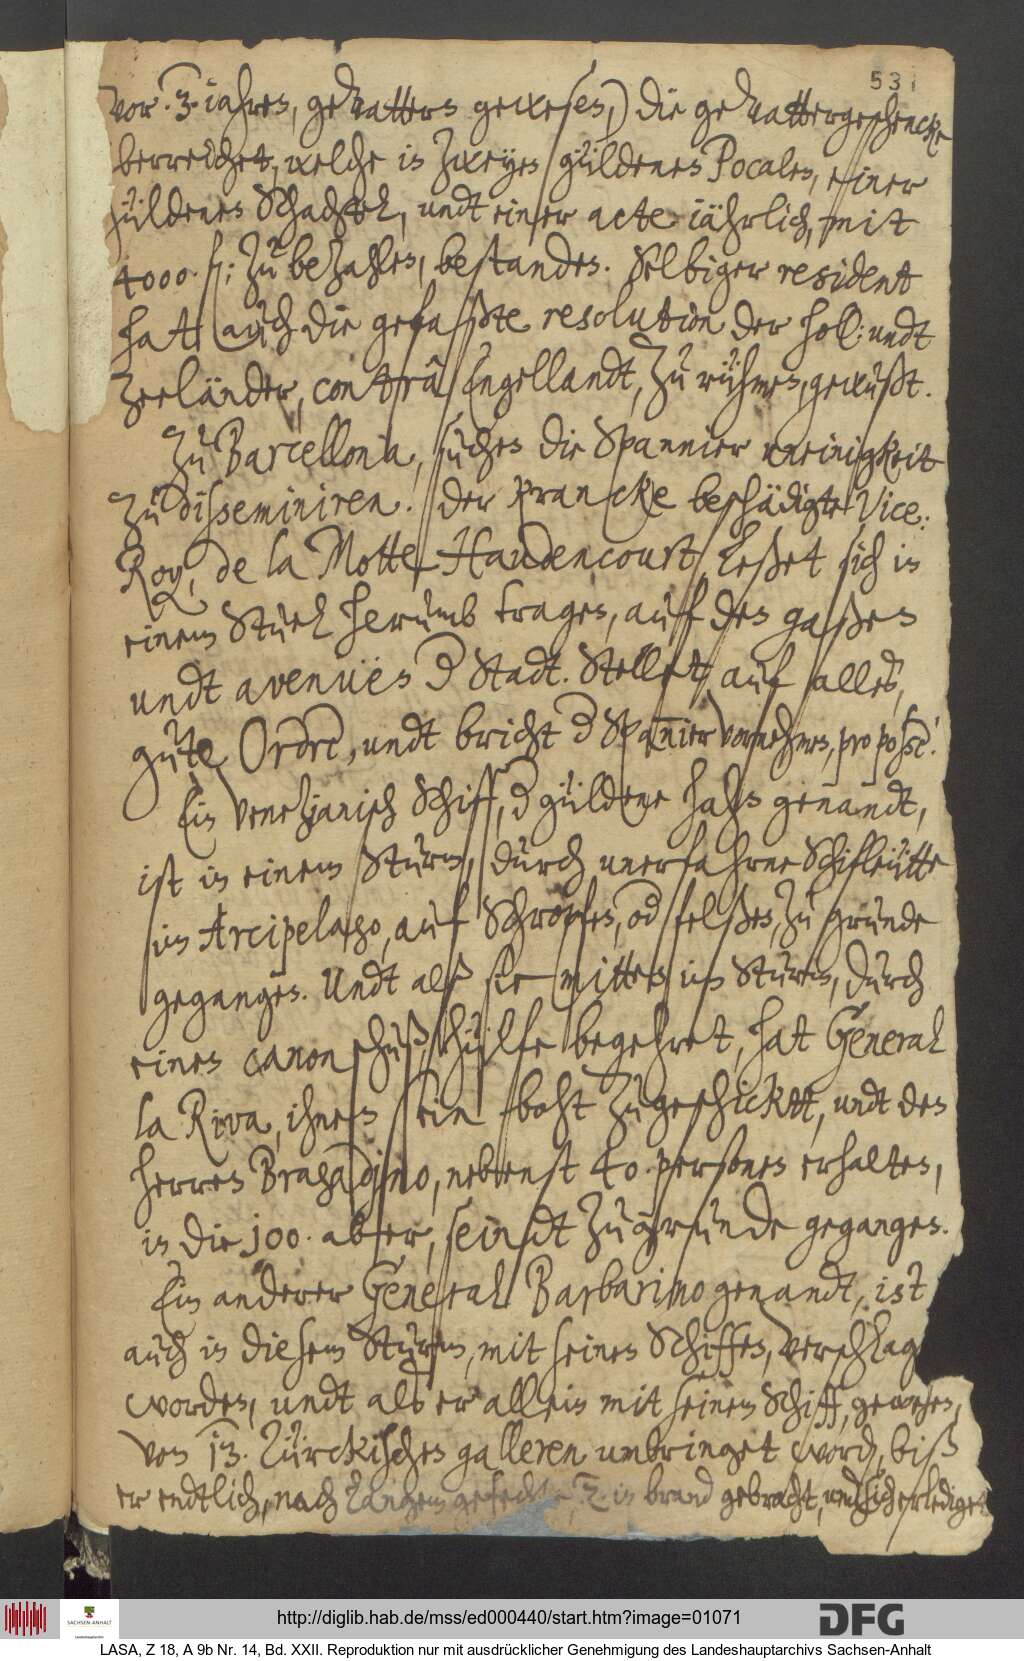 531
vor .3. iahren, gevattern gewesen,) die gevattergeschencke
berreichet, welche in zweyen güldenen Pocalen, einer
güldenen Schachtel, undt einer acte iährlich, mit
4000 fl: zu bezahlen, bestanden. Selbiger resident
hat auch die gefaßte resolution der Holl: undt
Zeeländer, contra Engellandt, zu rühmen, gewußt.
Zu Barcellona, suchen die Spannier uneinigkeit
zu disseminiren. der krancke beschädigte Vice:
Roy, de la Motte Haudencourt leßet sich in
einem Stuel herumb tragen, auf den gaßen
undt avenuën d Stadt. Stellet auf alles,
gute Ordre, undt bricht d Spannier vornehmen, pro posse!
Ein Venezianisch Schiff, d güldene hahn genandt,
ist in einem Sturm, durch unerfahrne Schifleütte
im Arcipelago, auf Schroffen, od felßen, zu grunde
gegangen. Undt alß sie mitten im Sturm, durch
einen canonschuß, hülfe begehret, hat General
la Riva, ihnen ein boht zugeschicktt, undt den
herren Bragadino, nebenst 40. personen erhalten,
in die 100. aber, seindt zu grunde gegangen.
Ein anderer General Barbarino genandt, ist
auch in diesem Sturm, mit seinen Schiffen, verschlagen
worden, undt als er allein mit seinem Schiff, gewesen,
von 13. Türckischen galleren umbringet word, biß
er endtlich, nach langem gefecht 2 in brand gebracht, und sich erlediget
http://diglib.hab.de/mss/ed000440/start.htm?image=01071
DFG
SACHSEN-ANHALT
LASA, Z 18, A 9b Nr. 14, Bd. XXII. Reproduktion nur mit ausdrücklicher Genehmigung des Landeshauptarchivs Sachsen-Anhalt